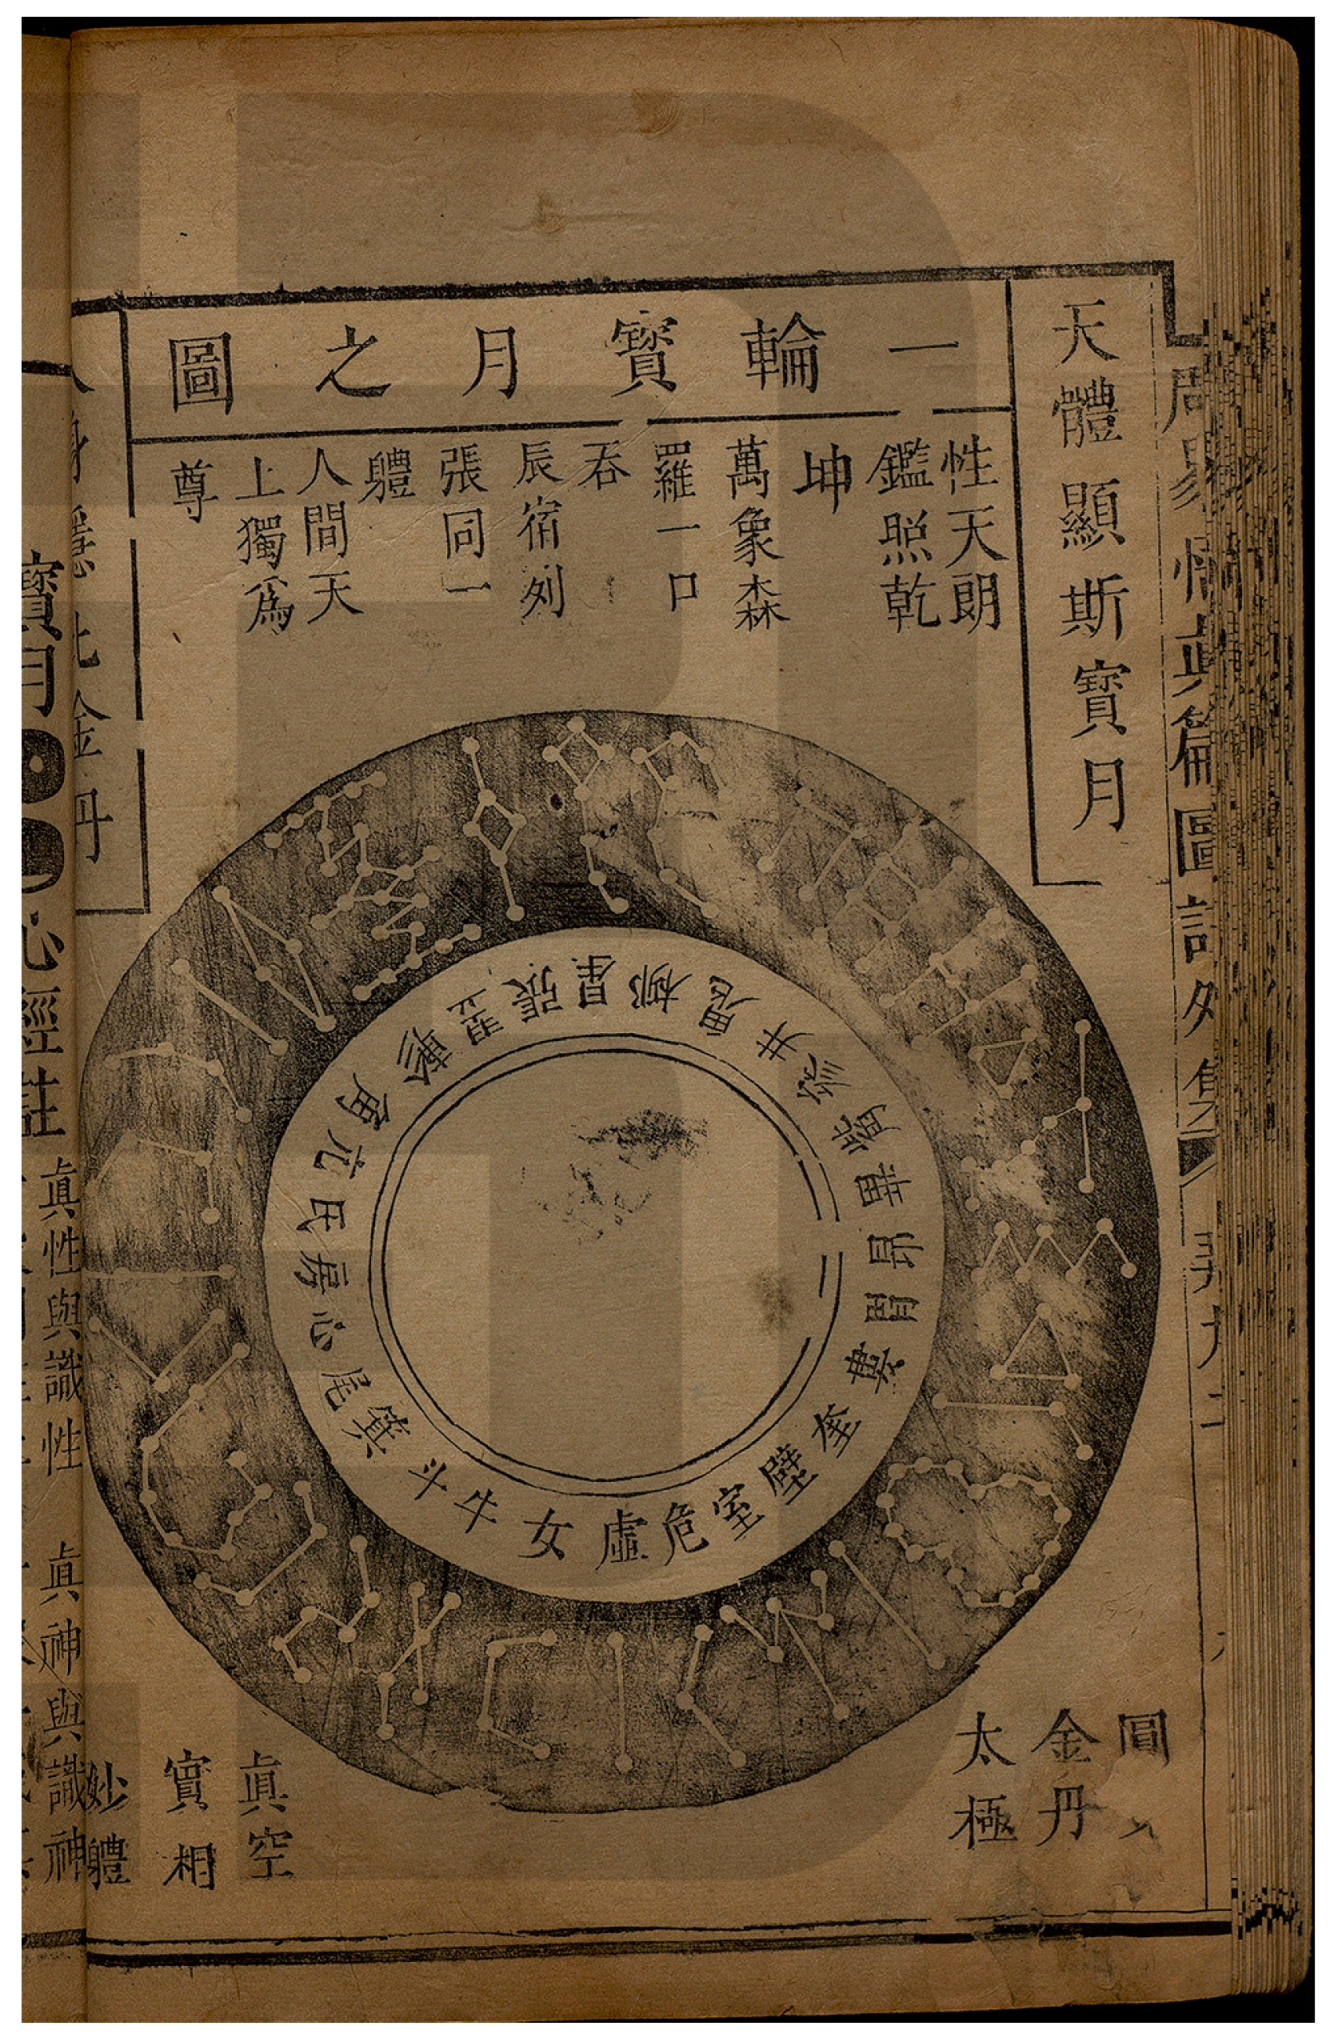 天體顯斯寶月
一輪寶月之圖
性天朗
鑑照乾
坤
萬象森
羅一口
吞
辰宿列
張同一
體
人間天
上獨爲
尊
角亢氐房心尾箕斗牛女虛危室壁奎婁胃昴畢觜參井鬼柳星張翌軫
金丹
太極
真空
實相
妙體
金丹
寶月
心經註
真性與識性 真神與識神